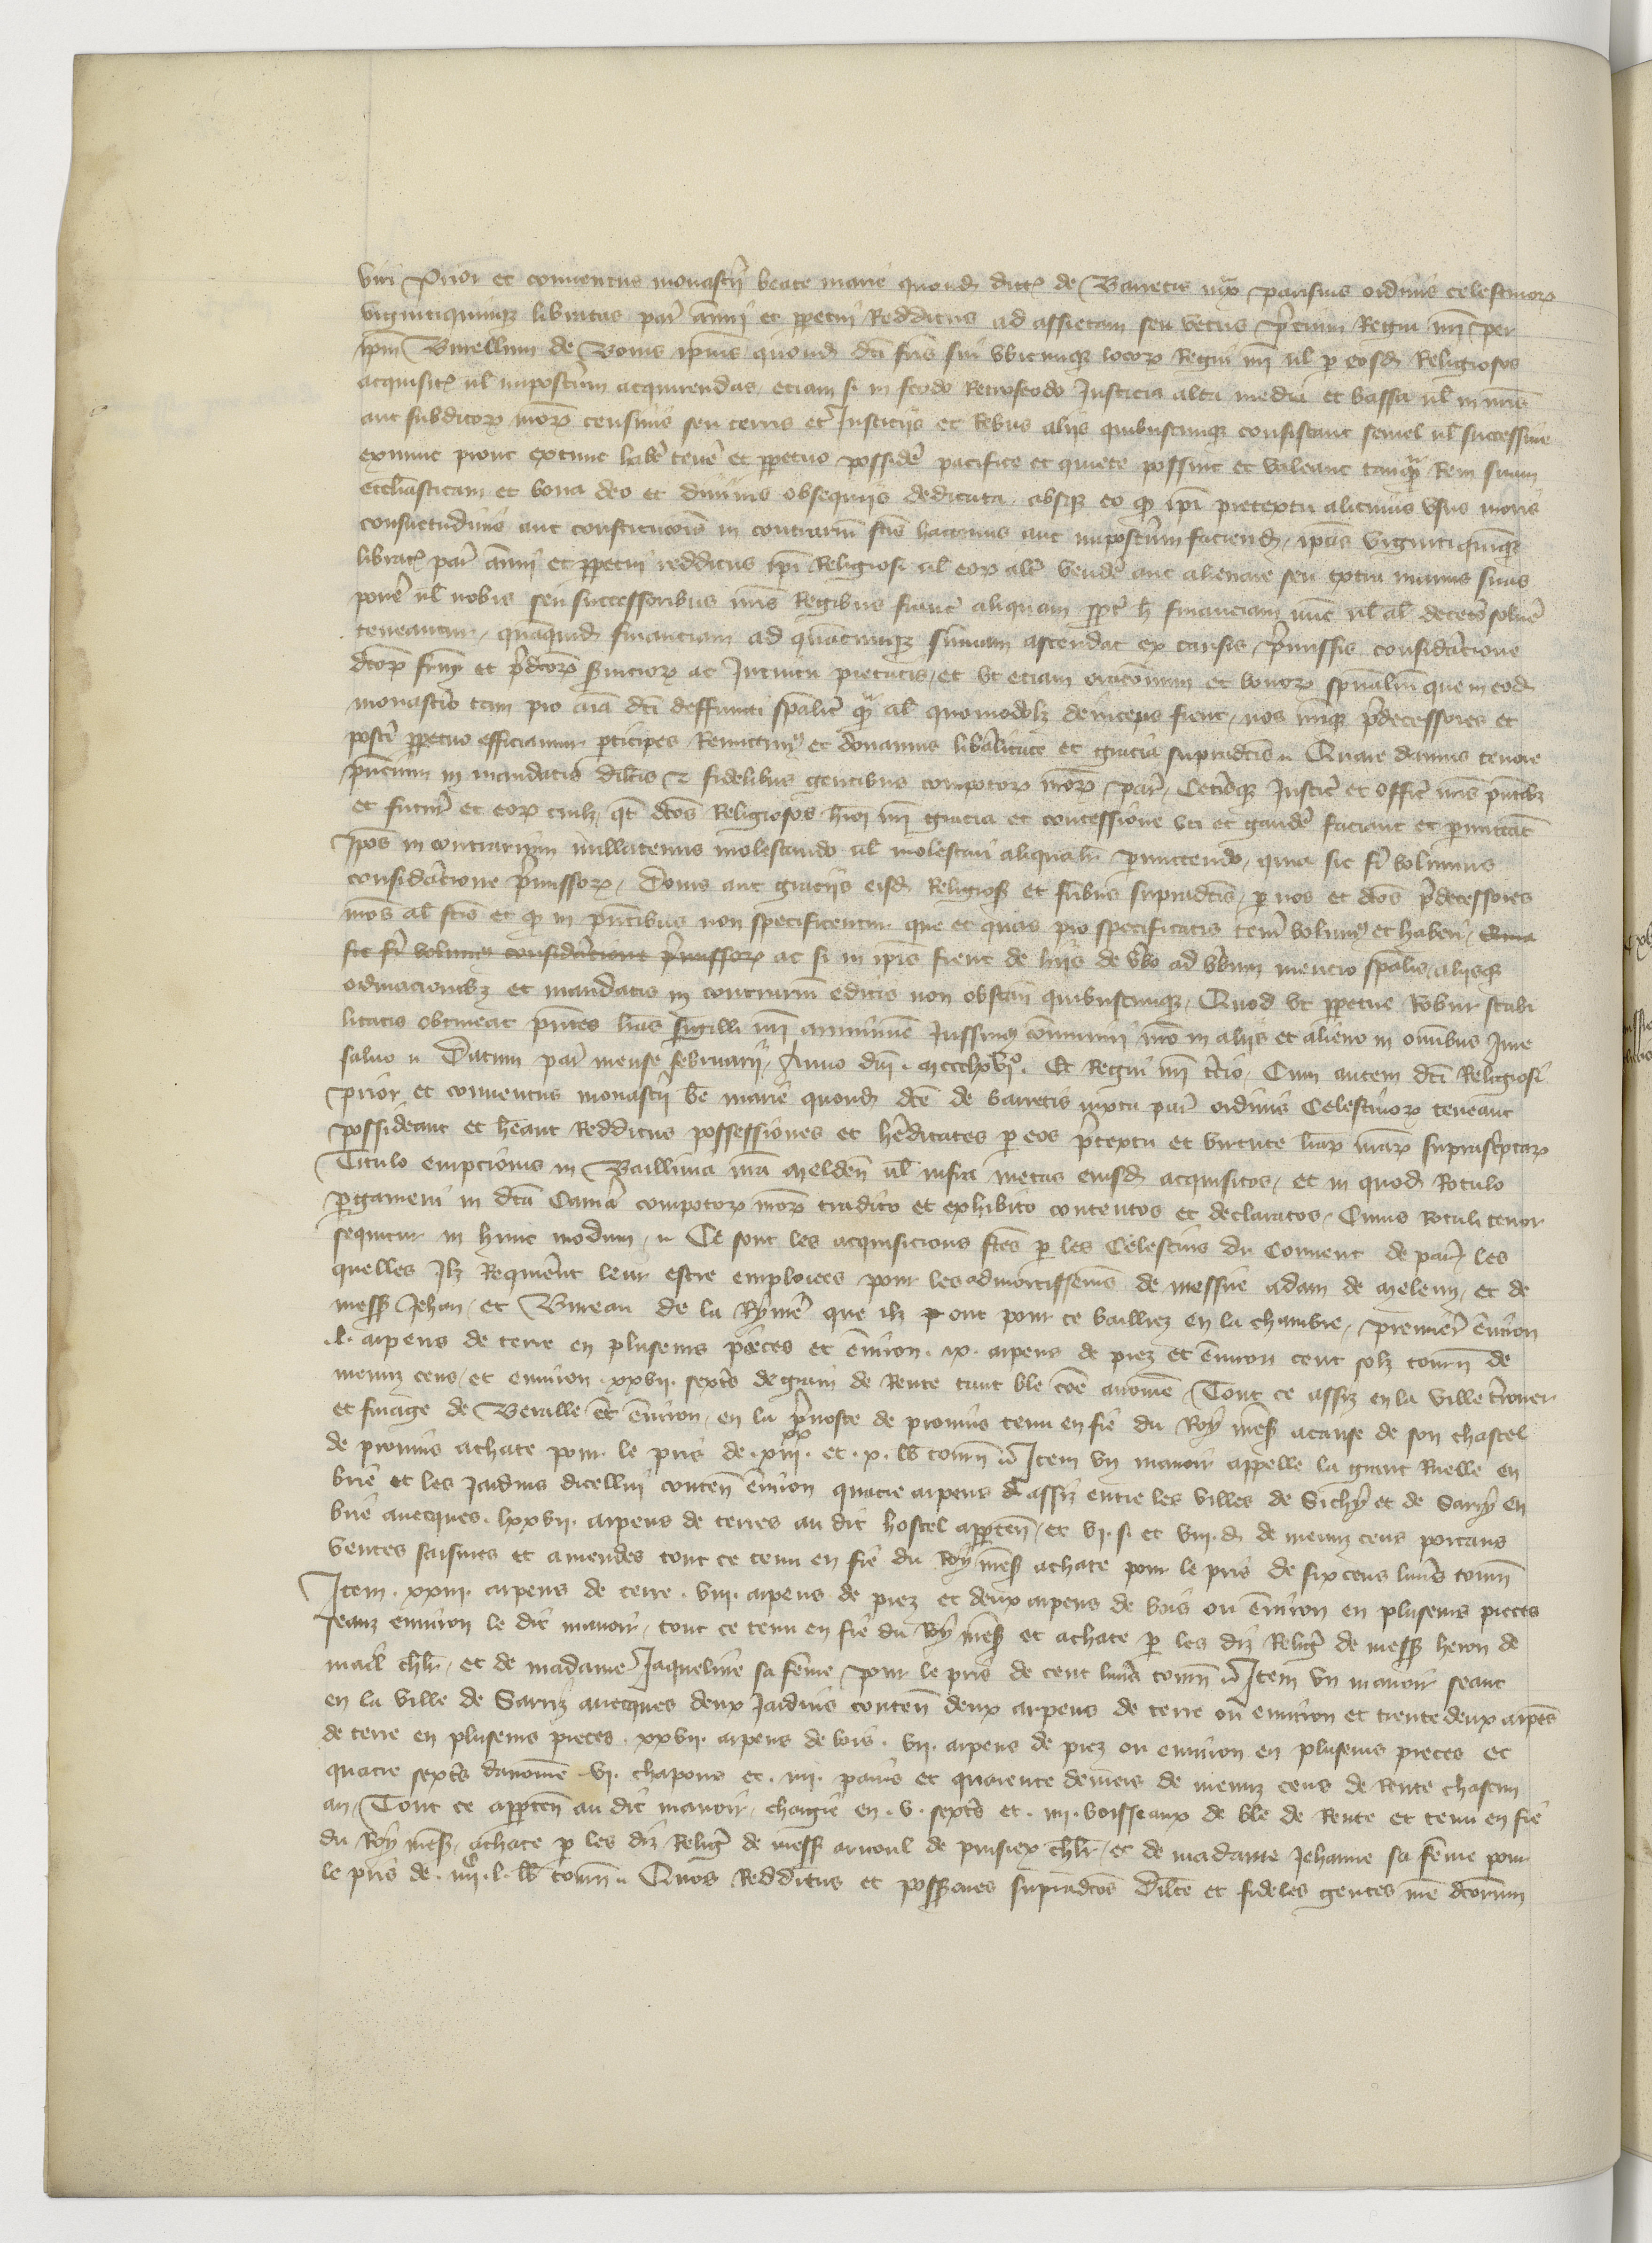 viri Prior et conventus monasterii beate marie quondam dicte de Barretis iuxta parisius ordinis celestinorum
viginticinque libratas paris annui et perpetui Redditus ad assietam seu vetus precium Regni nostri per
ipsum Burellum de Bonis ipsius quondam dicti fratris sui ubicunque locorum Regni nostri vel per eosdem Religiosos
acquisitis vel imposterum acquirendas, etiam si in feodo Retrofeodo Justicia alta media et bassa vel in nostris
aut subditorum nostrorum censivis seu terris et Justiciis et Rebus aliis quibuscunque consistant semel vel successive
exnunc prout extunc habere tenere et perpetuo possidere pacifice et quiete possint et valeant tanquam Rem suam
ecclesiasticam et bona deo et divinis obsequiis dedicata, absque eo quod ipsi pretextu alicuius usus moris
consuetudinis aut constitucionis in contrarium factis hactenus aut imposterum faciendis, ipsas viginticinque
libratas paris annui et perpetui redditus ipsi Religiosi vel eorum alter vendere aut alienare seu extra manus suas
ponere vel nobis seu successoribus nostris Regibus francie aliquam propter hoc financiam nunc vel alias decetero solvere
teneantur, quamquidem financiam ad quamcunque summam ascendat ex causis premissis consideracione
dictorum fratrum et predictorum serviciorum ac Intuitu pietatis, et ut etiam oracionum et bonorum spiritualium que in eodem
monasterio tam pro anima dicti deffuncti specialiter quam alias quomodolibet deinceps fient, nos nostrique predecessores et
posteri perpetuo efficiamur participes Remittimus et donamus liberalitate et gracia supradictis. Quare damus tenore
presentium in mandatis dilectis et fidelibus gentibus compotorum nostrorum paris, Ceterisque Justiciariis et officiariis nostris presentibus
et futuris et eorum cuilibet, quatenus dictos Religiosos huiusmodi nostra gracia et concessione uti et gaudere faciant et permittant
Ipsos in contrarium nullatenus molestando vel molestari aliqualiter permittendo, quia sic fieri volumus
consideracione premissorum, Donis aut graciis eisdem Religiosis et fratribus supradictis, per nos et dictos predecessores
nostros alias factis et quod in presentibus non specificentur que et quas pro specificatis teneri volumus et haberi, Quia
sic fieri volumus consideracione premissorum ac si in ipsis fieret de hiis de verbo ad verbum mencio specialis, aliisque
ordinacionibus et mandatis in contrarium editis non obstantibus quibuscunque, Quod ut perpetue Robur stabi
litatis obtineat presentes litteras sigilli nostri munimine Jussimus communiri nostro in aliis et alieno in omnibus Jure
salvo. Datum paris mense februarii, Anno domini mccclxvi°. Et Regni nostri tercio, Cum autem dicti Religiosi
prior et conventus monasterii beate marie quondam dicte de barretis iuxta paris ordinis Celestinorum teneant
possideant et habeant Redditus possessiones et hereditates per eos pretextu et virtute litterarum nostrarum suprascriptarum
Titulo empcionis in Baillivia nostra meldensi vel infra metas eiusdem acquisitos, et in quodam Rotulo
pergameni in dicta Camera compotorum nostrorum tradito et exhibito contentos et declaratos, Cuius Rotuli tenor
sequitur in hunc modum, Ce sont les acquisicions faites par les Celestins du Couvent de paris, les
quelles Ilz Requierent leur estre emploiees pour les admortissemens de messire adam de meleun, et de
mess Jehan, et Bureau de la Ryviere que ilz ont pour ce bailliez en la chambre, premierement environ
.l. arpens de terre en pluseurs pieces et environ .ix. arpens de prez et environ cent solz tournois de
menuz cens, et environ .xxvii. sextiers de grain de Rente tant ble come avoine, Tout ce assiz en la ville terrouer
et finage de Veralle et environ, en la prevoste de provins tenu en fie du Roy nostre seigneur acause de son chastel
de provins achate pour le pris de .xiii xx. et .x. lb tournois Item un manoir appelle la grant Ruelle en
brie et les Jardins dicellui contenant environ quatre arpens assiz entre les villes de Sichy et de Sarry en
brie avecques .lxxvii. arpens de terres au dit hostel appartenans, et vi. s. et viii. d. de menuz cens portans
ventes saisines et amendes tout ce tenu en fie du Roy nostre seigneur achate pour le pris de six cens livres tournois
Item .xxiii. arpens de terre .viii. arpens de prez et deux arpens de bois ou environ en pluseurs pieces
seanz environ le dit manoir, tout ce tenu en fie du Roy nostre seigneur et achate par les diz Religieux de mess heron de
mail chevalier, et de madame Jaqueline sa femme, pour le pris de cent livres tournois Item un manoir seant
en la ville de Sarriz avecques deux Jardins contenans deux arpens de terre ou environ et trente deux arpens
de terre en pluseurs pieces .xxvii. arpens de bois .vii. arpens de prez ou environ en pluseurs pieces et
quatre sextiers davoine .vi. chapons et .iii. pains et quarente deniers de menuz cens de Rente chascun
an, Tout ce appartenant au dit manoir, chargie en .v. sextiers et .iii. boisseaux de ble de Rente et tenu en fie
du Roy nostre seigneur, achate par les diz Religieux de mess arnoul de puisiex chevalier, et de madame Jehanne sa femme pour
le pris de .iiii c. l. lb tournois. Quos Redditus et possessiones supradictos Dilecte et fideles gentes nostre dictorum